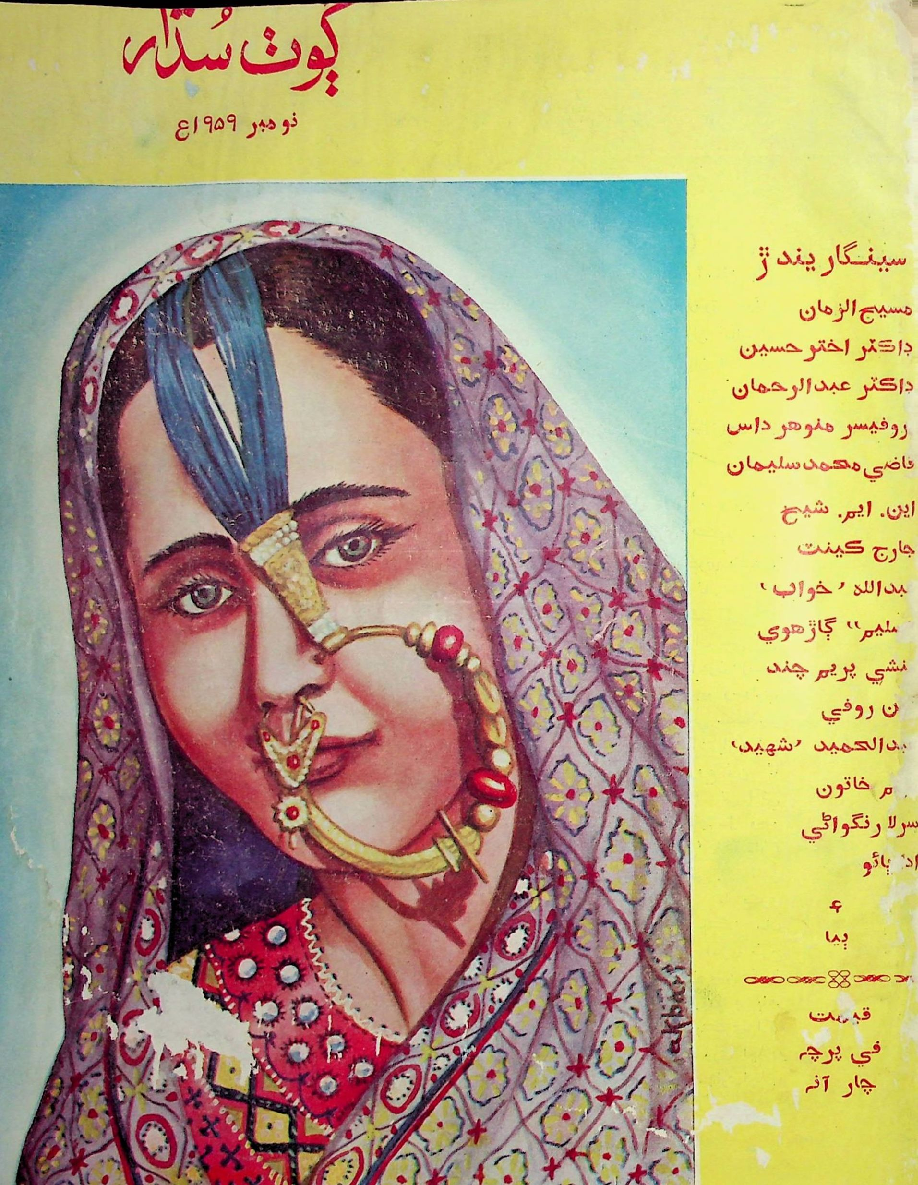 ڳوٺ سُڌار
نومبر ۱۹۵۹ع
سينگاريندڙ
مسيح الزمان
ڊاڪٽر اختر حسين
ڊاڪٽر عبدالرحمان
روفيسر منوهر داس
قاضي محمد سليمان
اين. ايم. شيخ
جارج ڪينٽ
بدالله ’خواب‘
سليم“ ڳاڙهوي
نشي پريم چند
ن روفي
بدالحميد ’شهيد‘
م خاتون
سرلا رنگواڻي
ادي ٻائو
۽
ٻيا
قيمت
في پرچه
چار آنہ
akbar